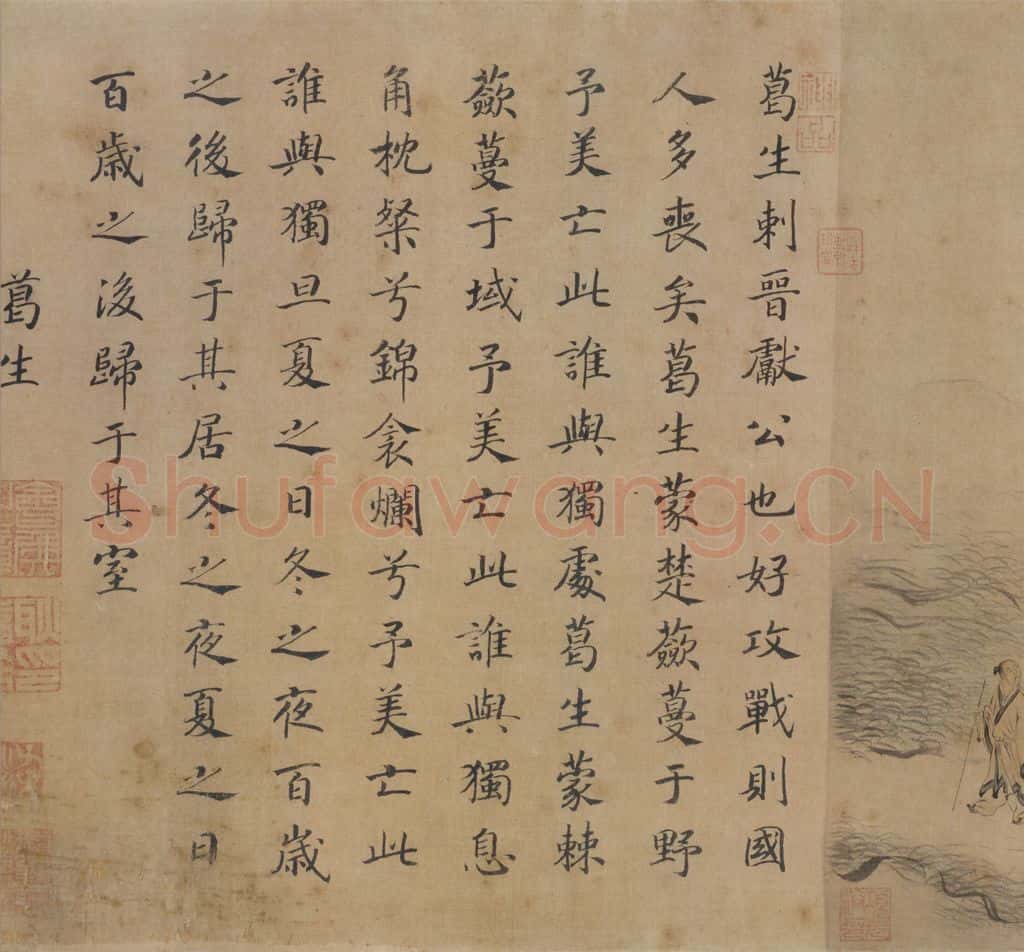 葛生刺晉獻公也好攻戰則國
人多喪矣葛生蒙楚蘞蔓于野
予美亡此誰與獨處葛生蒙棘
蘞蔓于域予美亡此誰與獨息
角枕粲兮錦衾爛兮予美亡此
誰與獨旦夏之日冬之夜百歲
之後歸于其居冬之夜夏之日
百歲之後歸于其室
葛生
Shufawang.CN